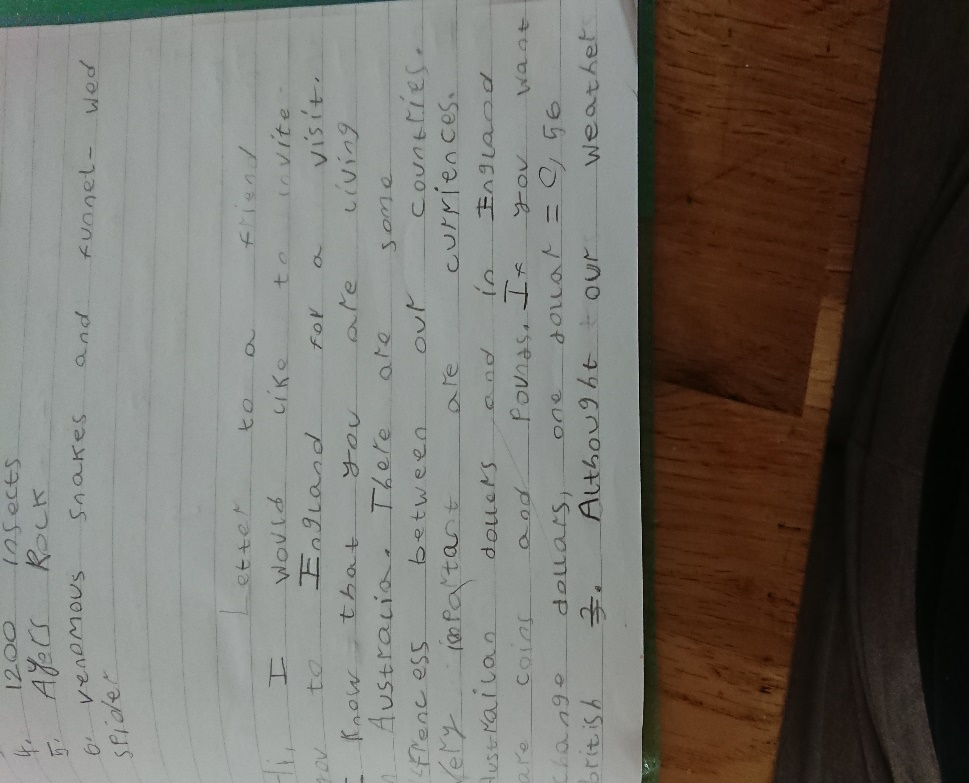 4. 1200 insects
5. Ayers Rock
6. venomous snakes and funnel-wed
spider
Letter to a friend
Hi, I would like to invite
you to England for a visit.
I know that you are living
in Australia. There are some
between our countries.
Very important are curriences.
Austrailan dollers and in England
are coins and pounds. If you want
change dollars, one dollar = 0,56
british £. Althought our weather